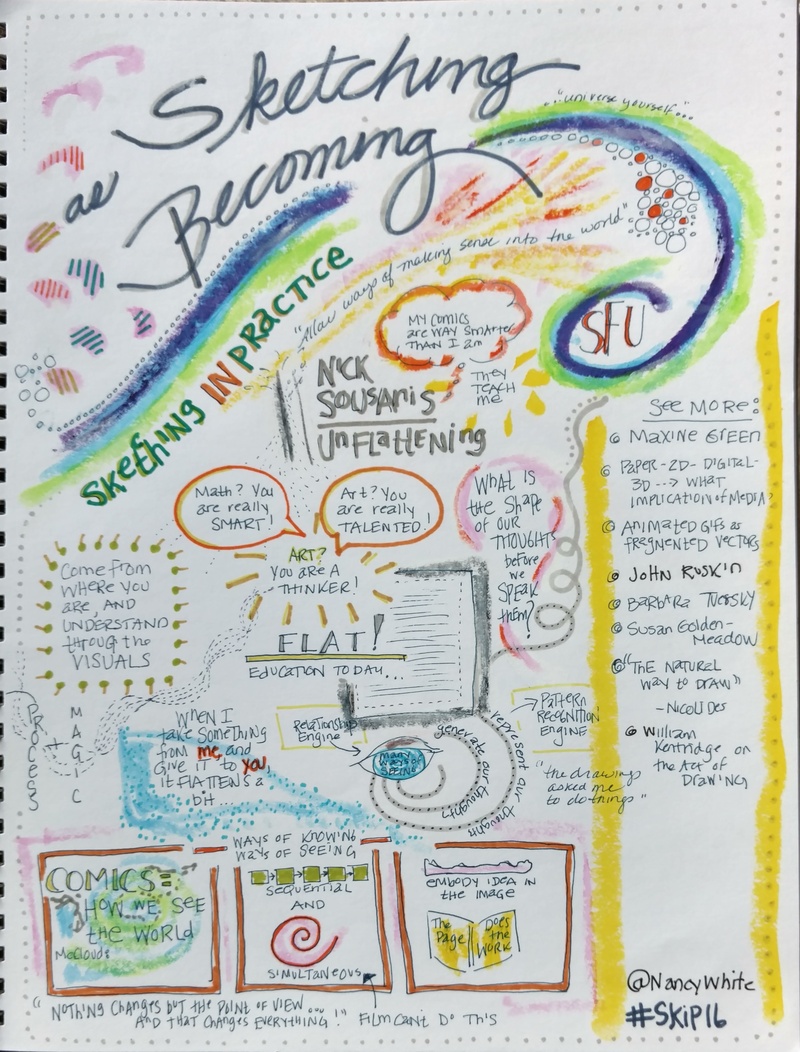 Sketching
as
Becoming
..."universe yourself"...
"Allow ways of making sense into the world"
Skething IN PRACTICE
SFU
My Comics
are WAY SMARTER
THAN I am
THEY
TEACH
me
NICK
SOUSANIS
UNFLATTENING
Math? You
are really
SMART!
Art? You
are really
TALENTED!
ART?
YOU ARE A
THINKER!
WHAT IS
the Shape
of OUR
THOUGHTS
before
we
SPEAK
them?
Come from
WHERE YOU
are, AND
UNDERSTAND
through the
VISUALS
FLAT!
EDUCATION TODAY...
PROCESS
+
MAGIC
WHEN I
take SOMETHING
from me, and
GIVE IT to YOU,
it FLATTENS a
bit...
Relationship
Engine
many
WAYS OF
SEEING
generate our thoughts
represent our thoughts
Pattern
RECOGNITION
ENGINE
"the drawings
asked me
to do things"
See More:
MAXINE GREEN
PAPER-2D-DIGITAL-
3D ---> WHAT
IMPLICATION of MEDIA?
ANIMATED GIFs as
FRAGMENTED VECTORS
JOHN RUSKIN
BARBARA TVERSKY
Susan Golden-
Meadow
"THE NATURAL
WAY to DRAW"
-NICOLIDES
William
Kentridge on
the Act of
DRAWING
COMICS =
HOW WE SEE
the WORLD
McCloud:
WAYS OF KNOWING
WAYS OF SEEING
SEQUENTIAL
AND
SIMULTANEOUS
EMBODY IDEA IN
the IMAGE
The
Page
Does
the
WORK
"NOTHING CHANGES BUT THE POINT OF VIEW...
AND THAT CHANGES EVERYTHING!"
FILM CAN'T DO THIS
@NancyWhite
#SKIP16